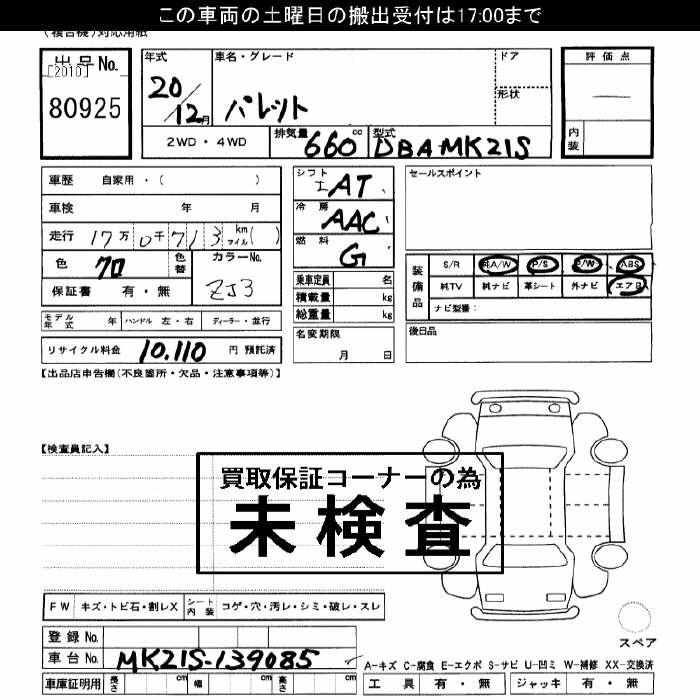 この車両の土曜日の搬出受付は17:00まで
(複合機)対応用紙
出品No.
[2010]
80925
年式
20/12月
車名・グレード
パレット
ドア
形状
評価点
内装
2WD・4WD
排気量 660 cc
型式 DBA-MK21S
車歴 自家用・( )
車検 年 月
走行 17万0千713 km マイル( )
色 クロ
色替
カラーNo.
ZJ3
保証書 有・無
モデル年式 年 ハンドル 左・右 ディーラー・並行
リサイクル料金 10.110 円 預託済
シフト
AT
冷房
AAC
燃料
G
乗車定員 名
積載量 kg
総重量 kg
名変期限
月 日
セールスポイント
装備品
S/R 純A/W P/S P/W ABS
純TV 純ナビ 革シート 外ナビ エアB
ナビ型番:
後日品
【出品店申告欄(不良箇所・欠品・注意事項等)】
【検査員記入】
買取保証コーナーの為
未検査
FW キズ・トビ石・割レX シート内装 コゲ・穴・汚レ・シミ・破レ・スレ
登録No.
車台No. MK21S-139085
車庫証明用 長さ cm 幅 cm 高さ cm
スペア
A-キズ C-腐食 E-エクボ S-サビ U-凹ミ W-補修 XX-交換済
工具 有・無 ジャッキ 有・無